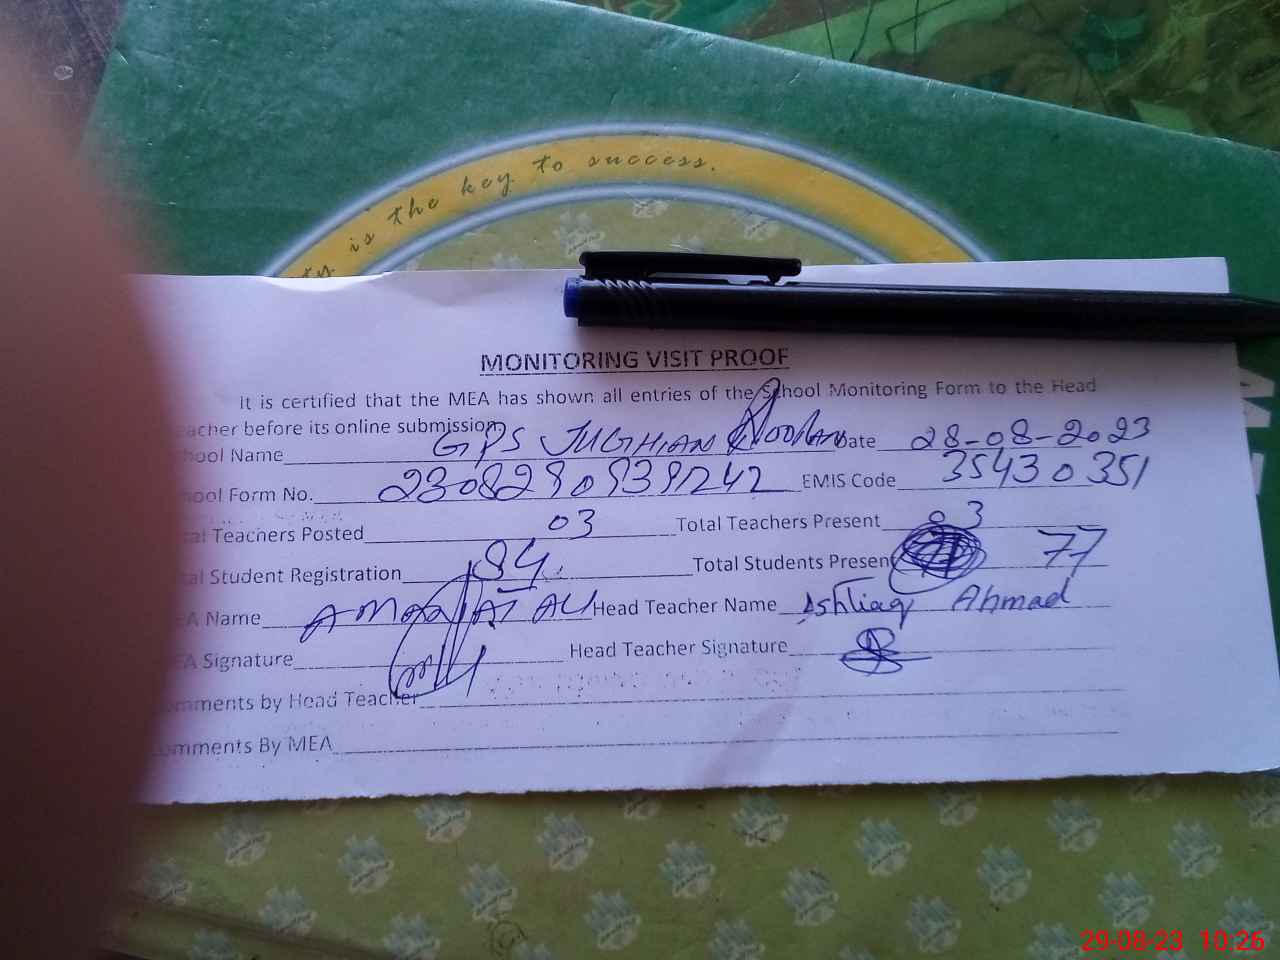 is the key to success.
MONITORING VISIT PROOF
It is certified that the MEA has shown all entries of the School Monitoring Form to the Head
eacher before its online submission
hool Name GPS JUGHIAN Date 28-08-2023
ool Form No. EMIS Code 35430351
al Teachers Posted 03 Total Teachers Present 03
al Student Registration 84 Total Students Present 77
A Name Head Teacher Name Ashtiaq Ahmad
A Signature Head Teacher Signature
omments by Head Teacher
omments By MEA
29-08-23 10:26